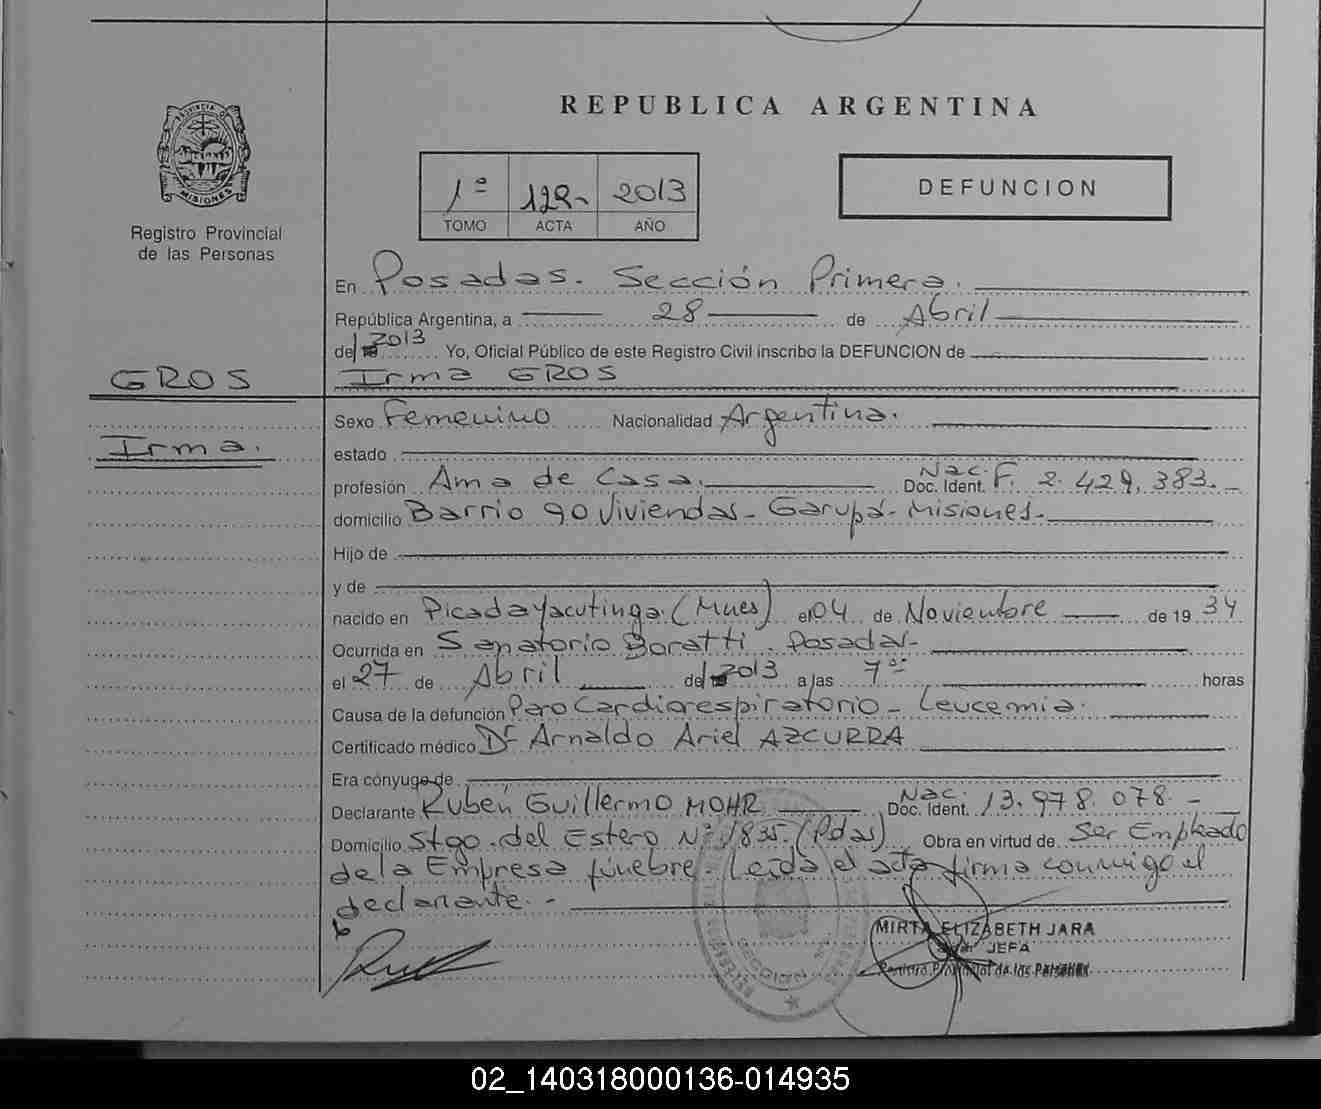 REPUBLICA ARGENTINA
PROVINCIA DE
MISIONES
Registro Provincial
de las Personas
1º 128- 2013
TOMO ACTA AÑO
DEFUNCION
En Posadas. Sección Primera.
República Argentina, a 28 de Abril
del 2013 Yo, Oficial Público de este Registro Civil inscribo la DEFUNCION de
GROS
Irma GROS
Irma.
Sexo Femenino Nacionalidad Argentina.
estado
profesión Ama de Casa. Nac. Doc. Ident. F. 2.429.383.-
domicilio Barrio 90 Viviendas - Garupá - Misiones.-
Hijo de
y de
nacido en Picada Yacutinga (Mnes) el 04 de Noviembre de 1934
Ocurrida en Sanatorio Boratti. Posadas-
el 27 de Abril del 2013 a las 7 horas
Causa de la defunción Paro Cardiorespiratorio - Leucemia.
Certificado médico Dr Arnaldo Ariel AZCURRA
Era cónyuge de
Declarante Rubén Guillermo MOHR Nac. Doc. Ident. 13.978.078.-
Domicilio Stgo. del Estero Nº 1835 (Pdas) Obra en virtud de Ser Empleado
de la Empresa fúnebre. Leída el acta firma conmigo el
declarante.-
MIRTA ELIZABETH JARA
JEFA
Registro Provincial de las Personas
SECCION
02_140318000136-014935